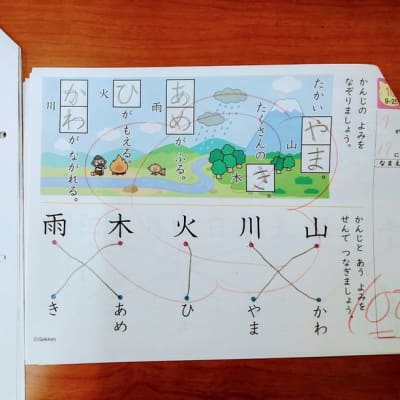 かんじの よみを
なぞりましょう。
たかい やま。
山
たくさんの き。
木
あめがふる。
雨
ひがもえる。
火
かわがながれる。
川
かんじと あう よみを
せんで つなぎましょう。
山 川 火 木 雨
かわ やま ひ あめ き
©Gakken